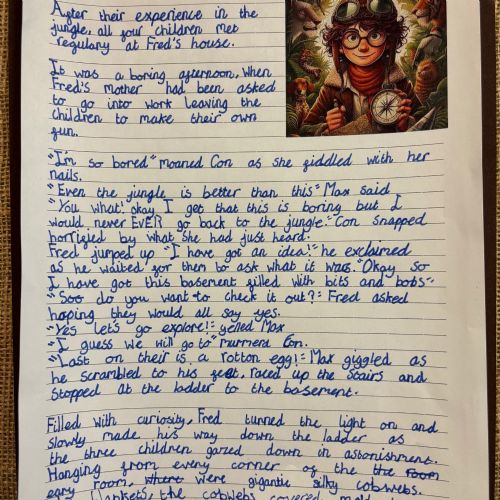 After their experience in the
jungle, all four children met
regulary at Fred's house.
It was a boring afternoon, when
Fred's mother had been asked
to go into work leaving the
children to make their own
fun.
"I'm so bored" moaned Con as she fiddled with her
nails.
"Even the jungle is better than this" Max said
"You what! okay I get that this is boring but I
would never EVER go back to the jungle." Con snapped
horrified by what she had just heard.
Fred jumped up "I have got an idea!" he exclaimed
as he waited for them to ask what it was. "Okay so
I have got this basement filled with bits and bobs"
"Soo do you want to check it out?" Fred asked
hoping they would all say yes.
"Yes let's go explore!" yelled Max
"I guess we will go to" murmerd Con.
"Last on their is a rotton egg!" Max giggled as
he scrambled to his feet, raced up the stairs and
stopped at the ladder to the basement.
Filled with curiosity, Fred turned the light on and
slowly made his way down the ladder as
the three children gazed down in astonishment.
Hanging from every corner of the the room
eary room, where were gigantic silky cobwebs.
blankets, the cobwebs covered